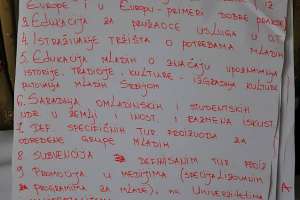 EVROPE I U EVROPU - PRIMERI DOBRE PRAKSE
3. EDUKACIJA ZA PRUŽAOCE USLUGA U O.T.
4. ISTRAŽIVANJE TRŽIŠTA O POTREBAMA MLADIH
5. EDUKACIJA MLADIH O ZNAČAJU UPOZNAVANJA
ISTORIJE, TRADICIJE, KULTURE - IZGRADNJA KULTURE
PUTOVANJA MLADIH SRBIJOM
6. SARADNJA OMLADINSKIH I STUDENTSKIH
UDR. U ZEMLJI I INOST. I RAZMENA ISKUST.
7. DEF. SPECIFIČNIH TUR. PROIZVODA ZA
ODREĐENE GRUPE MLADIH
8. SUBVENCIJA DEFINISANIM TUR. PROIZ.
9. PROMOCIJA U MEDIJIMA (SPECIJALIZOVANIM
PROGRAMIMA ZA MLADE), NA UNIVERZITETIMA